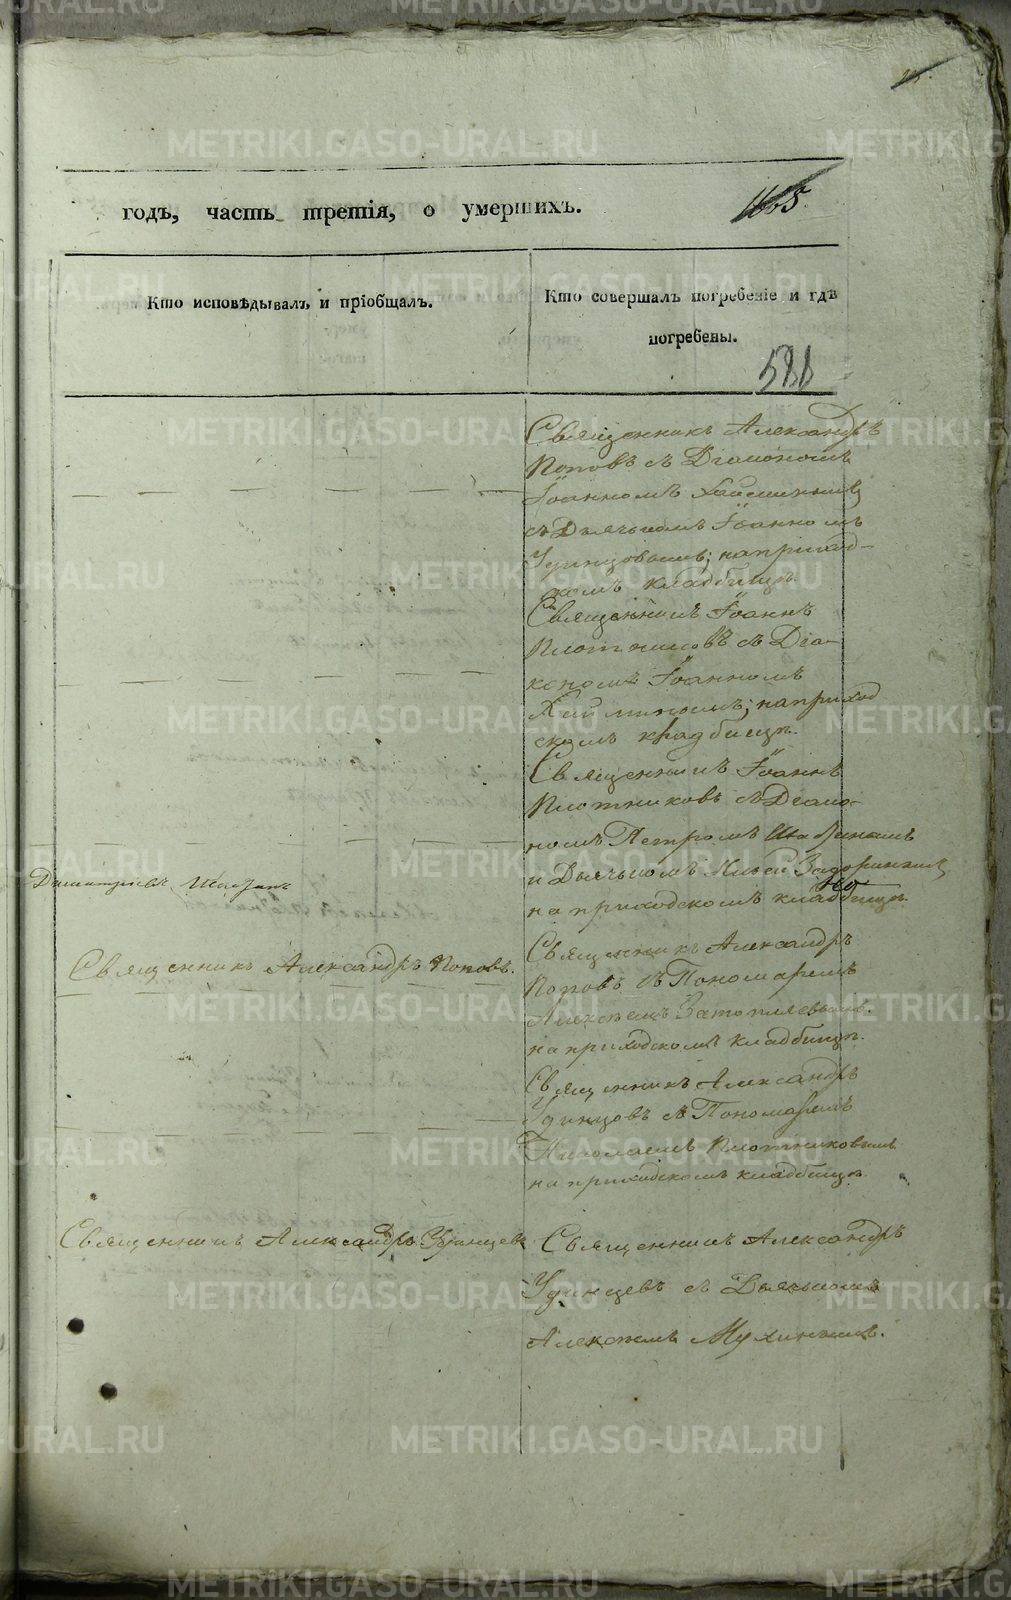 годъ, часть третія, о умершихъ.
Кто исповѣдывалъ и пріобщалъ.
Кто совершалъ погребеніе и гдѣ
погребены.
588
Священникъ Александръ
Поповъ съ Діакономъ
Іоанномъ
съ Дьячкомъ Іоанномъ
Удинцовымъ; на приход-
скомъ кладбищѣ.
Священникъ Іоаннъ
Плотниковъ съ Діа-
кономъ Іоанномъ
на приход
скомъ кладбищѣ.
Священникъ Іоаннъ
Плотниковъ съ Діако-
номъ Петромъ
и Дьячкомъ
на приходскомъ кладбищѣ.
Священникъ Александръ Поповъ.
Священникъ Александръ
Поповъ съ Пономаремъ
Алексѣемъ Затопляевымъ.
на приходскомъ кладбищѣ.
Священникъ Александръ
Удинцовъ съ Пономаремъ
Николаемъ Плотниковымъ
на приходскомъ кладбищѣ.
Священникъ Александръ Удинцевъ
Священникъ Александръ
Удинцевъ съ Дьячкомъ
Алексѣемъ Мухинымъ.
METRIKI.GASO-URAL.RU